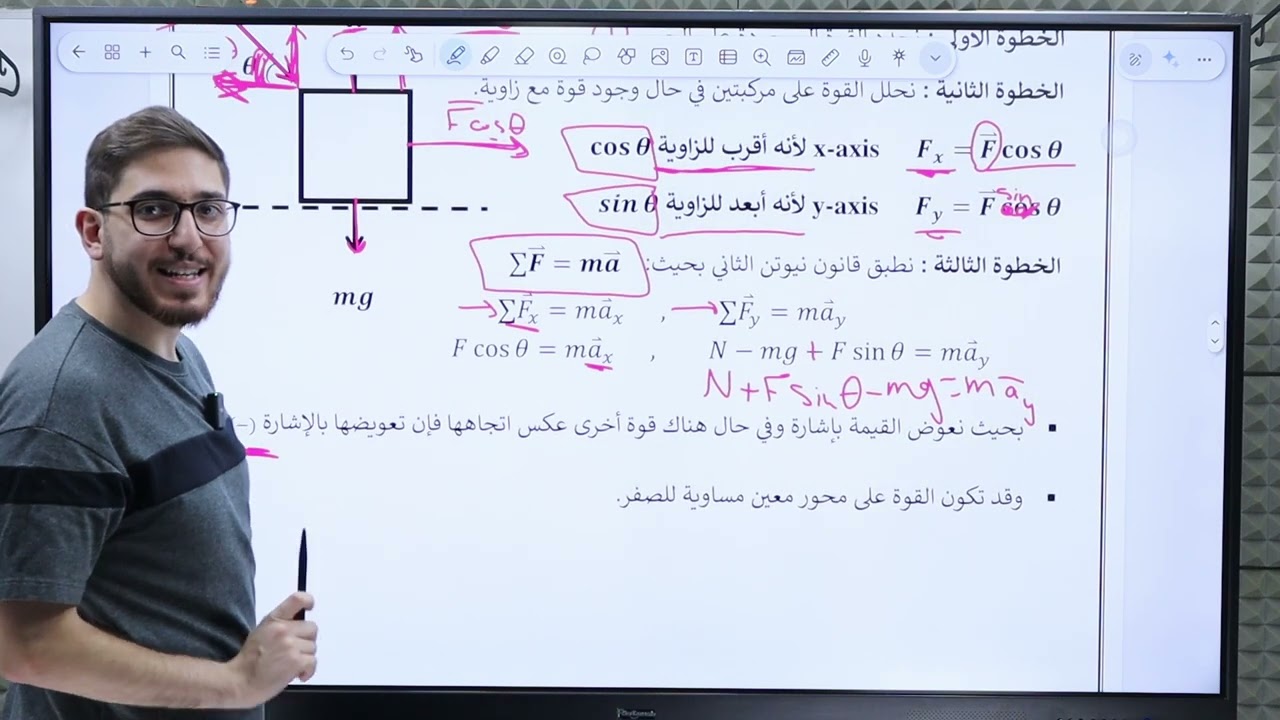 الخطوة الاولى
θ
الخطوة الثانية : نحلل القوة على مركبتين في حال وجود قوة مع زاوية.
F cos θ
cos θ لأنه أقرب للزاوية x-axis F_x = F⃗ cos θ
sin θ لأنه أبعد للزاوية y-axis F_y = F⃗ cos θ
sin
الخطوة الثالثة : نطبق قانون نيوتن الثاني بحيث: ∑F⃗ = ma⃗
mg
∑F⃗_x = ma⃗_x , ∑F⃗_y = ma⃗_y
F cos θ = ma⃗_x , N − mg + F sin θ = ma⃗_y
N + F sin θ − mg = m a_y
بحيث نعوض القيمة بإشارة وفي حال هناك قوة أخرى عكس اتجاهها فإن تعويضها بالإشارة (−)
وقد تكون القوة على محور معين مساوية للصفر.